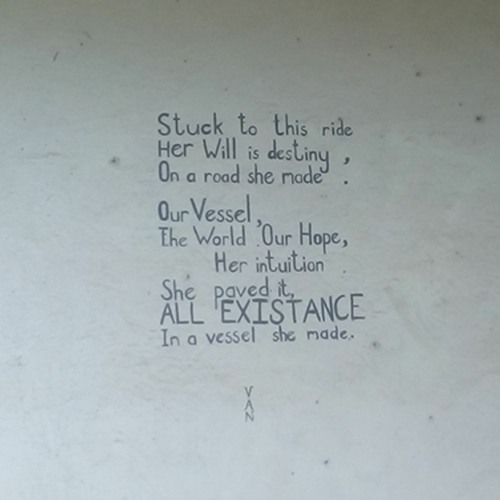 Stuck to this ride
Her Will is destiny ,
On a road she made .
Our Vessel,
The World Our Hope,
Her intuition .
She paved it,
ALL EXISTANCE
In a vessel she made.
V
A
N